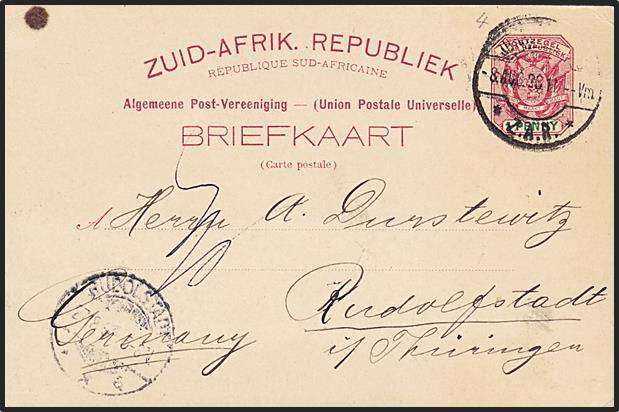 4
ZUID-AFRIK. REPUBLIEK
REPUBLIQUE SUD-AFRICAINE
Algemeene Post-Vereeniging — (Union Postale Universelle)
BRIEFKAART
(Carte postale)
POSTZEGEL
PENNY
Z.A.R.
A Herrn A. Durstewitz
Rudolfstadt
i/ Thüringen
Germany
RUDOLSTADT